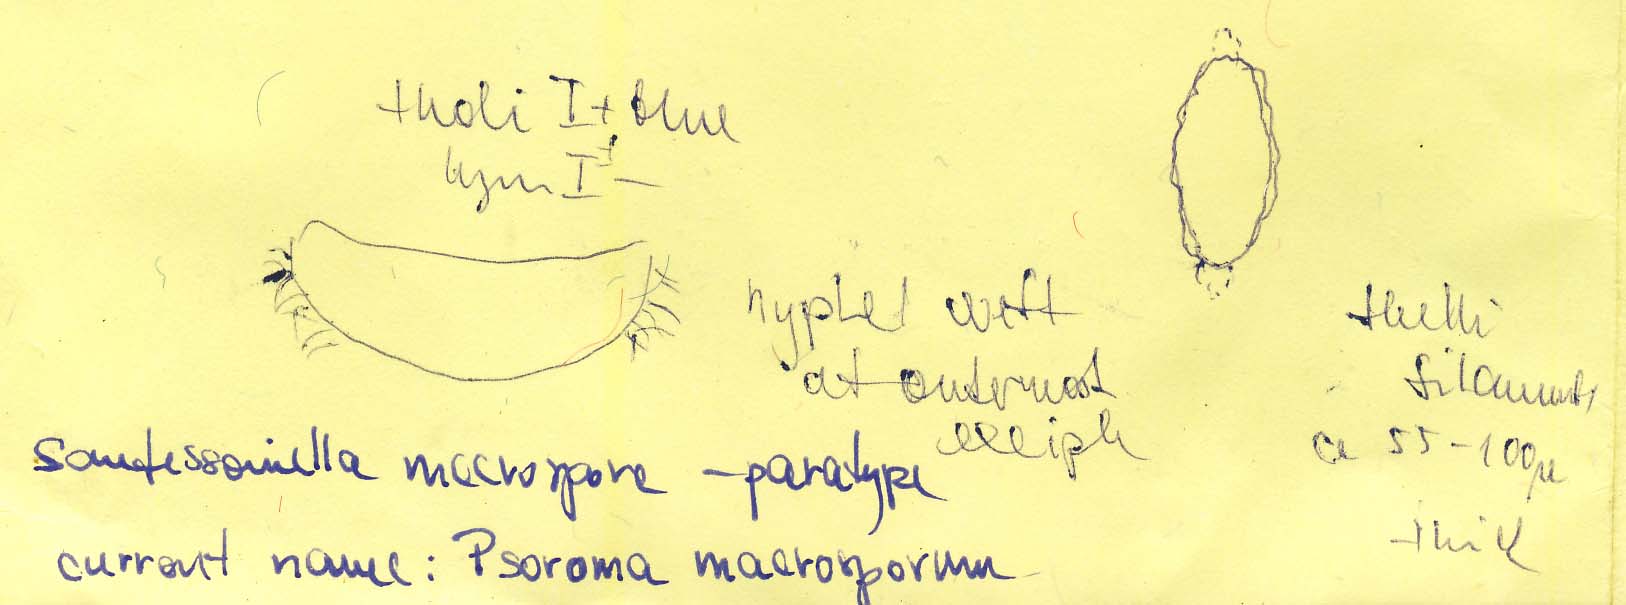 tholi I+ blue
hym I+ –
hyphel weft
at outermost
exciple
thalli
filaments
ca 55-100µ
thick
Santessoniella macrospora - paratype
current name: Psoroma macrosporum